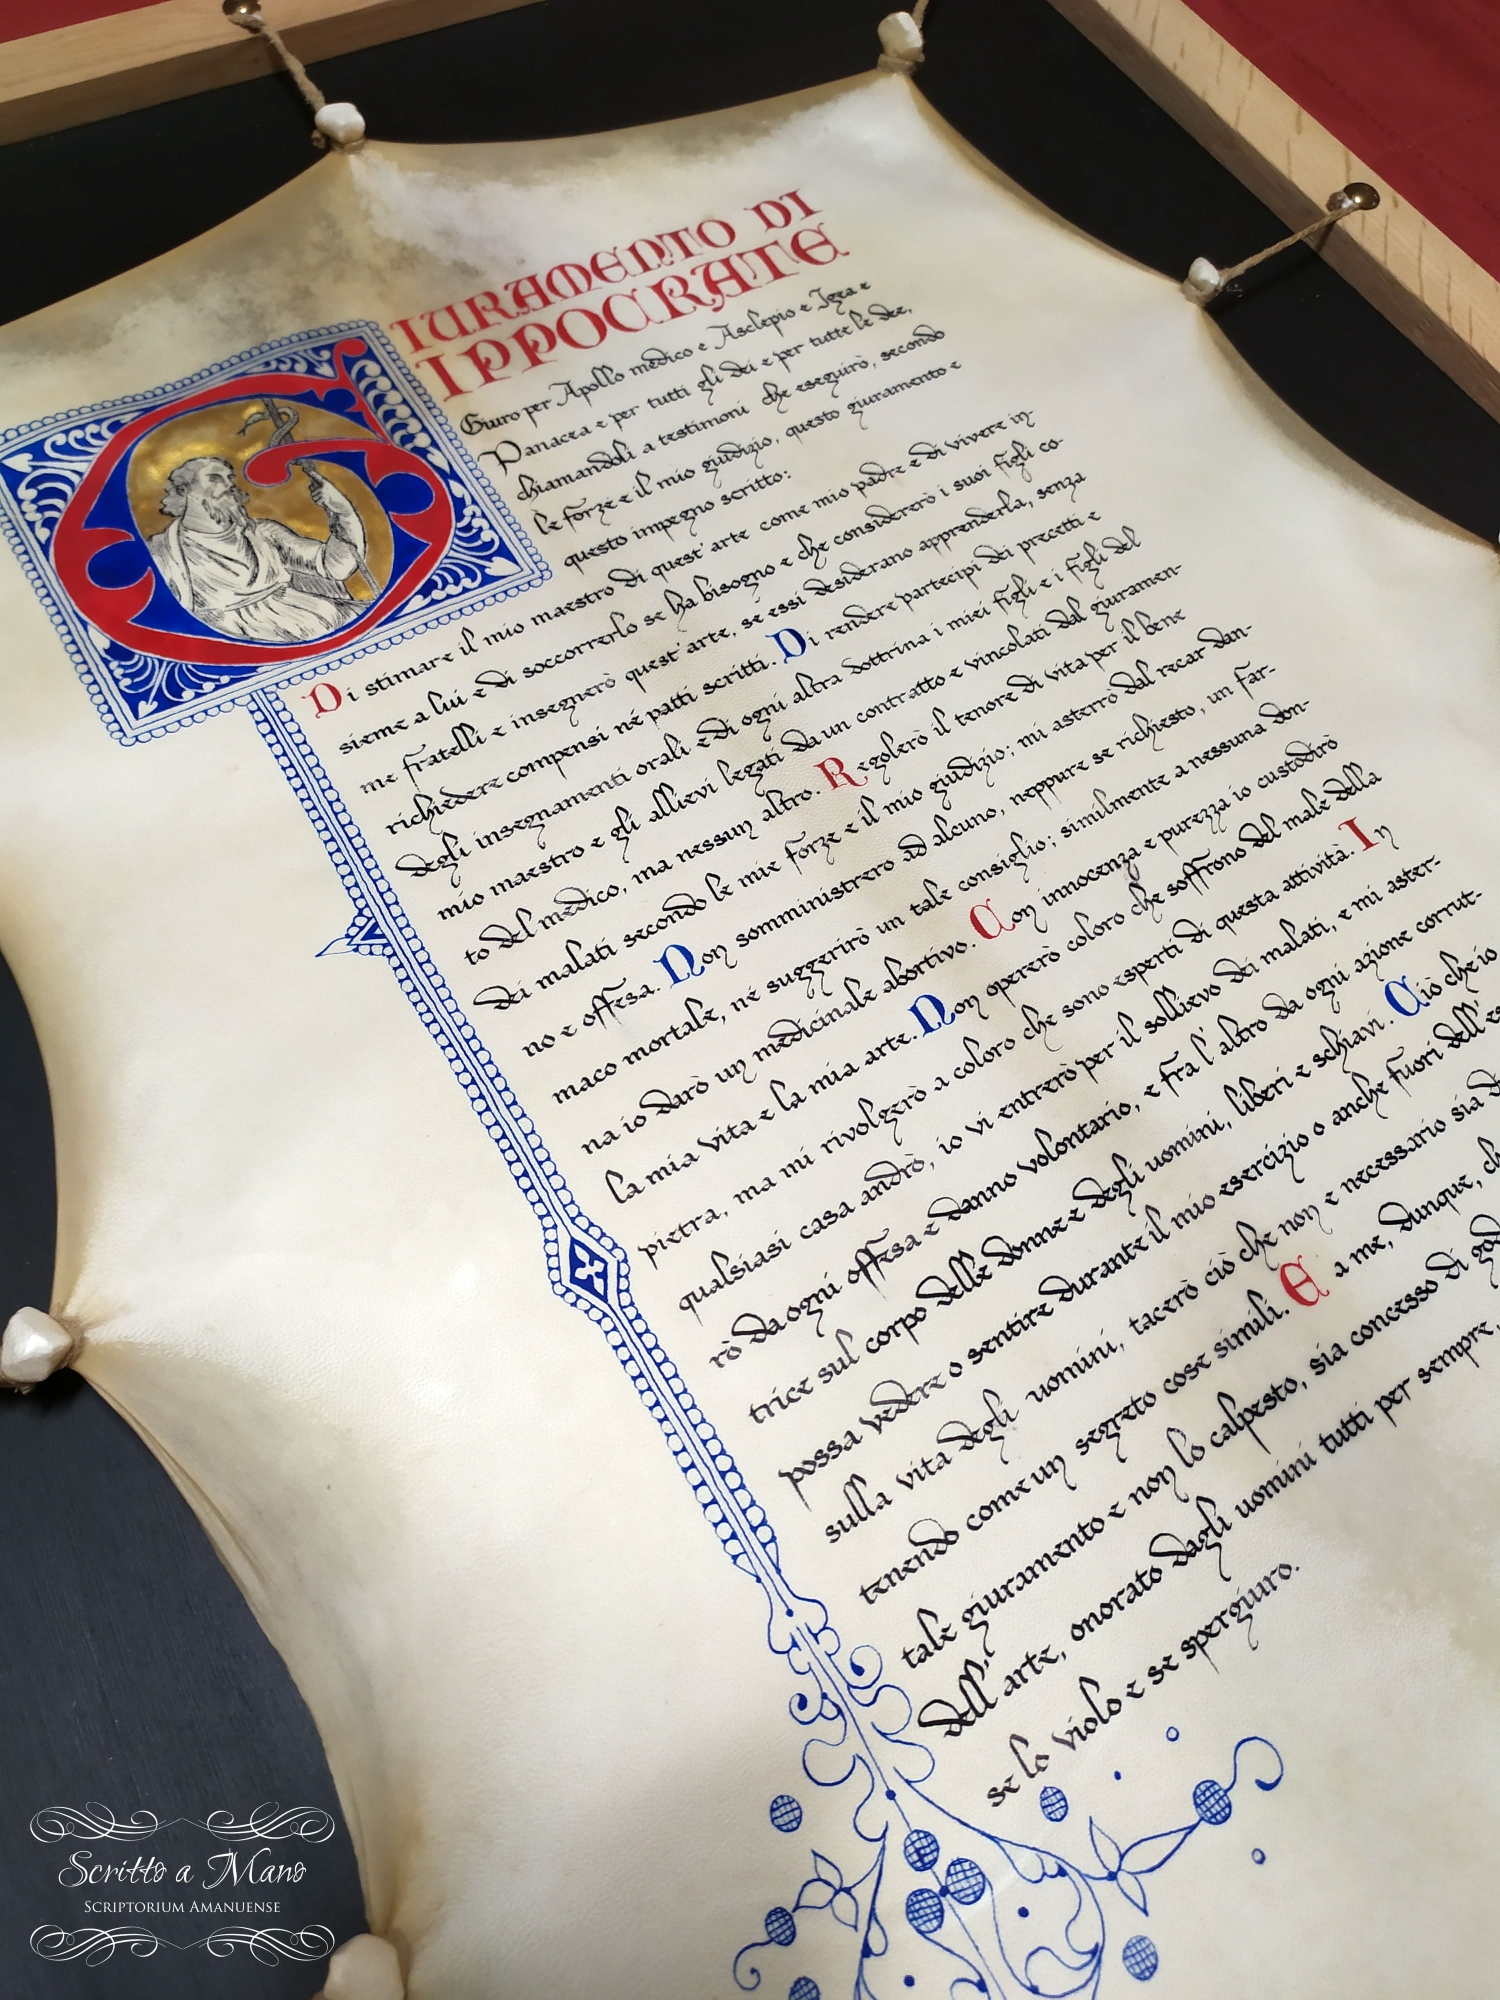 GIURAMENTO DI
IPPOCRATE
Giuro per Apollo medico e Asclepio e Igea e
Panacea e per tutti gli dei e per tutte le dee,
chiamandoli a testimoni che eseguirò, secondo
le forze e il mio giudizio, questo giuramento e
questo impegno scritto:
Di stimare il mio maestro di quest'arte come mio padre e di vivere in-
sieme a lui e di soccorrerlo se ha bisogno e che considererò i suoi figli co-
me fratelli e insegnerò quest'arte, se essi desiderano apprenderla, senza
richiedere compensi né patti scritti. Di rendere partecipi dei precetti e
degli insegnamenti orali e di ogni altra dottrina i miei figli e i figli del
mio maestro e gli allievi legati da un contratto e vincolati dal giuramen-
to del medico, ma nessun altro. Regolerò il tenore di vita per il bene
dei malati secondo le mie forze e il mio giudizio; mi asterrò dal recar dan-
no e offesa. Non somministrerò ad alcuno, neppure se richiesto, un far-
maco mortale, né suggerirò un tale consiglio; similmente a nessuna don-
na io darò un medicinale abortivo. Con innocenza e purezza io custodirò
la mia vita e la mia arte. Non opererò coloro che soffrono del male della
pietra, ma mi rivolgerò a coloro che sono esperti di questa attività. In
qualsiasi casa andrò, io vi entrerò per il sollievo dei malati, e mi aster-
rò da ogni offesa e danno volontario, e fra l'altro da ogni azione corrut-
trice sul corpo delle donne e degli uomini, liberi e schiavi. Ciò che io
possa vedere o sentire durante il mio esercizio o anche fuori dell'
sulla vita degli uomini, tacerò ciò che non e necessario sia
tenendo come un segreto cose simili. E a me, dunque,
tale giuramento e non lo calpesto, sia concesso di
dell'arte, onorato dagli uomini tutti per sempre,
se lo violo e se spergiuro.
Scritto a Mano
SCRIPTORIUM AMANUENSE